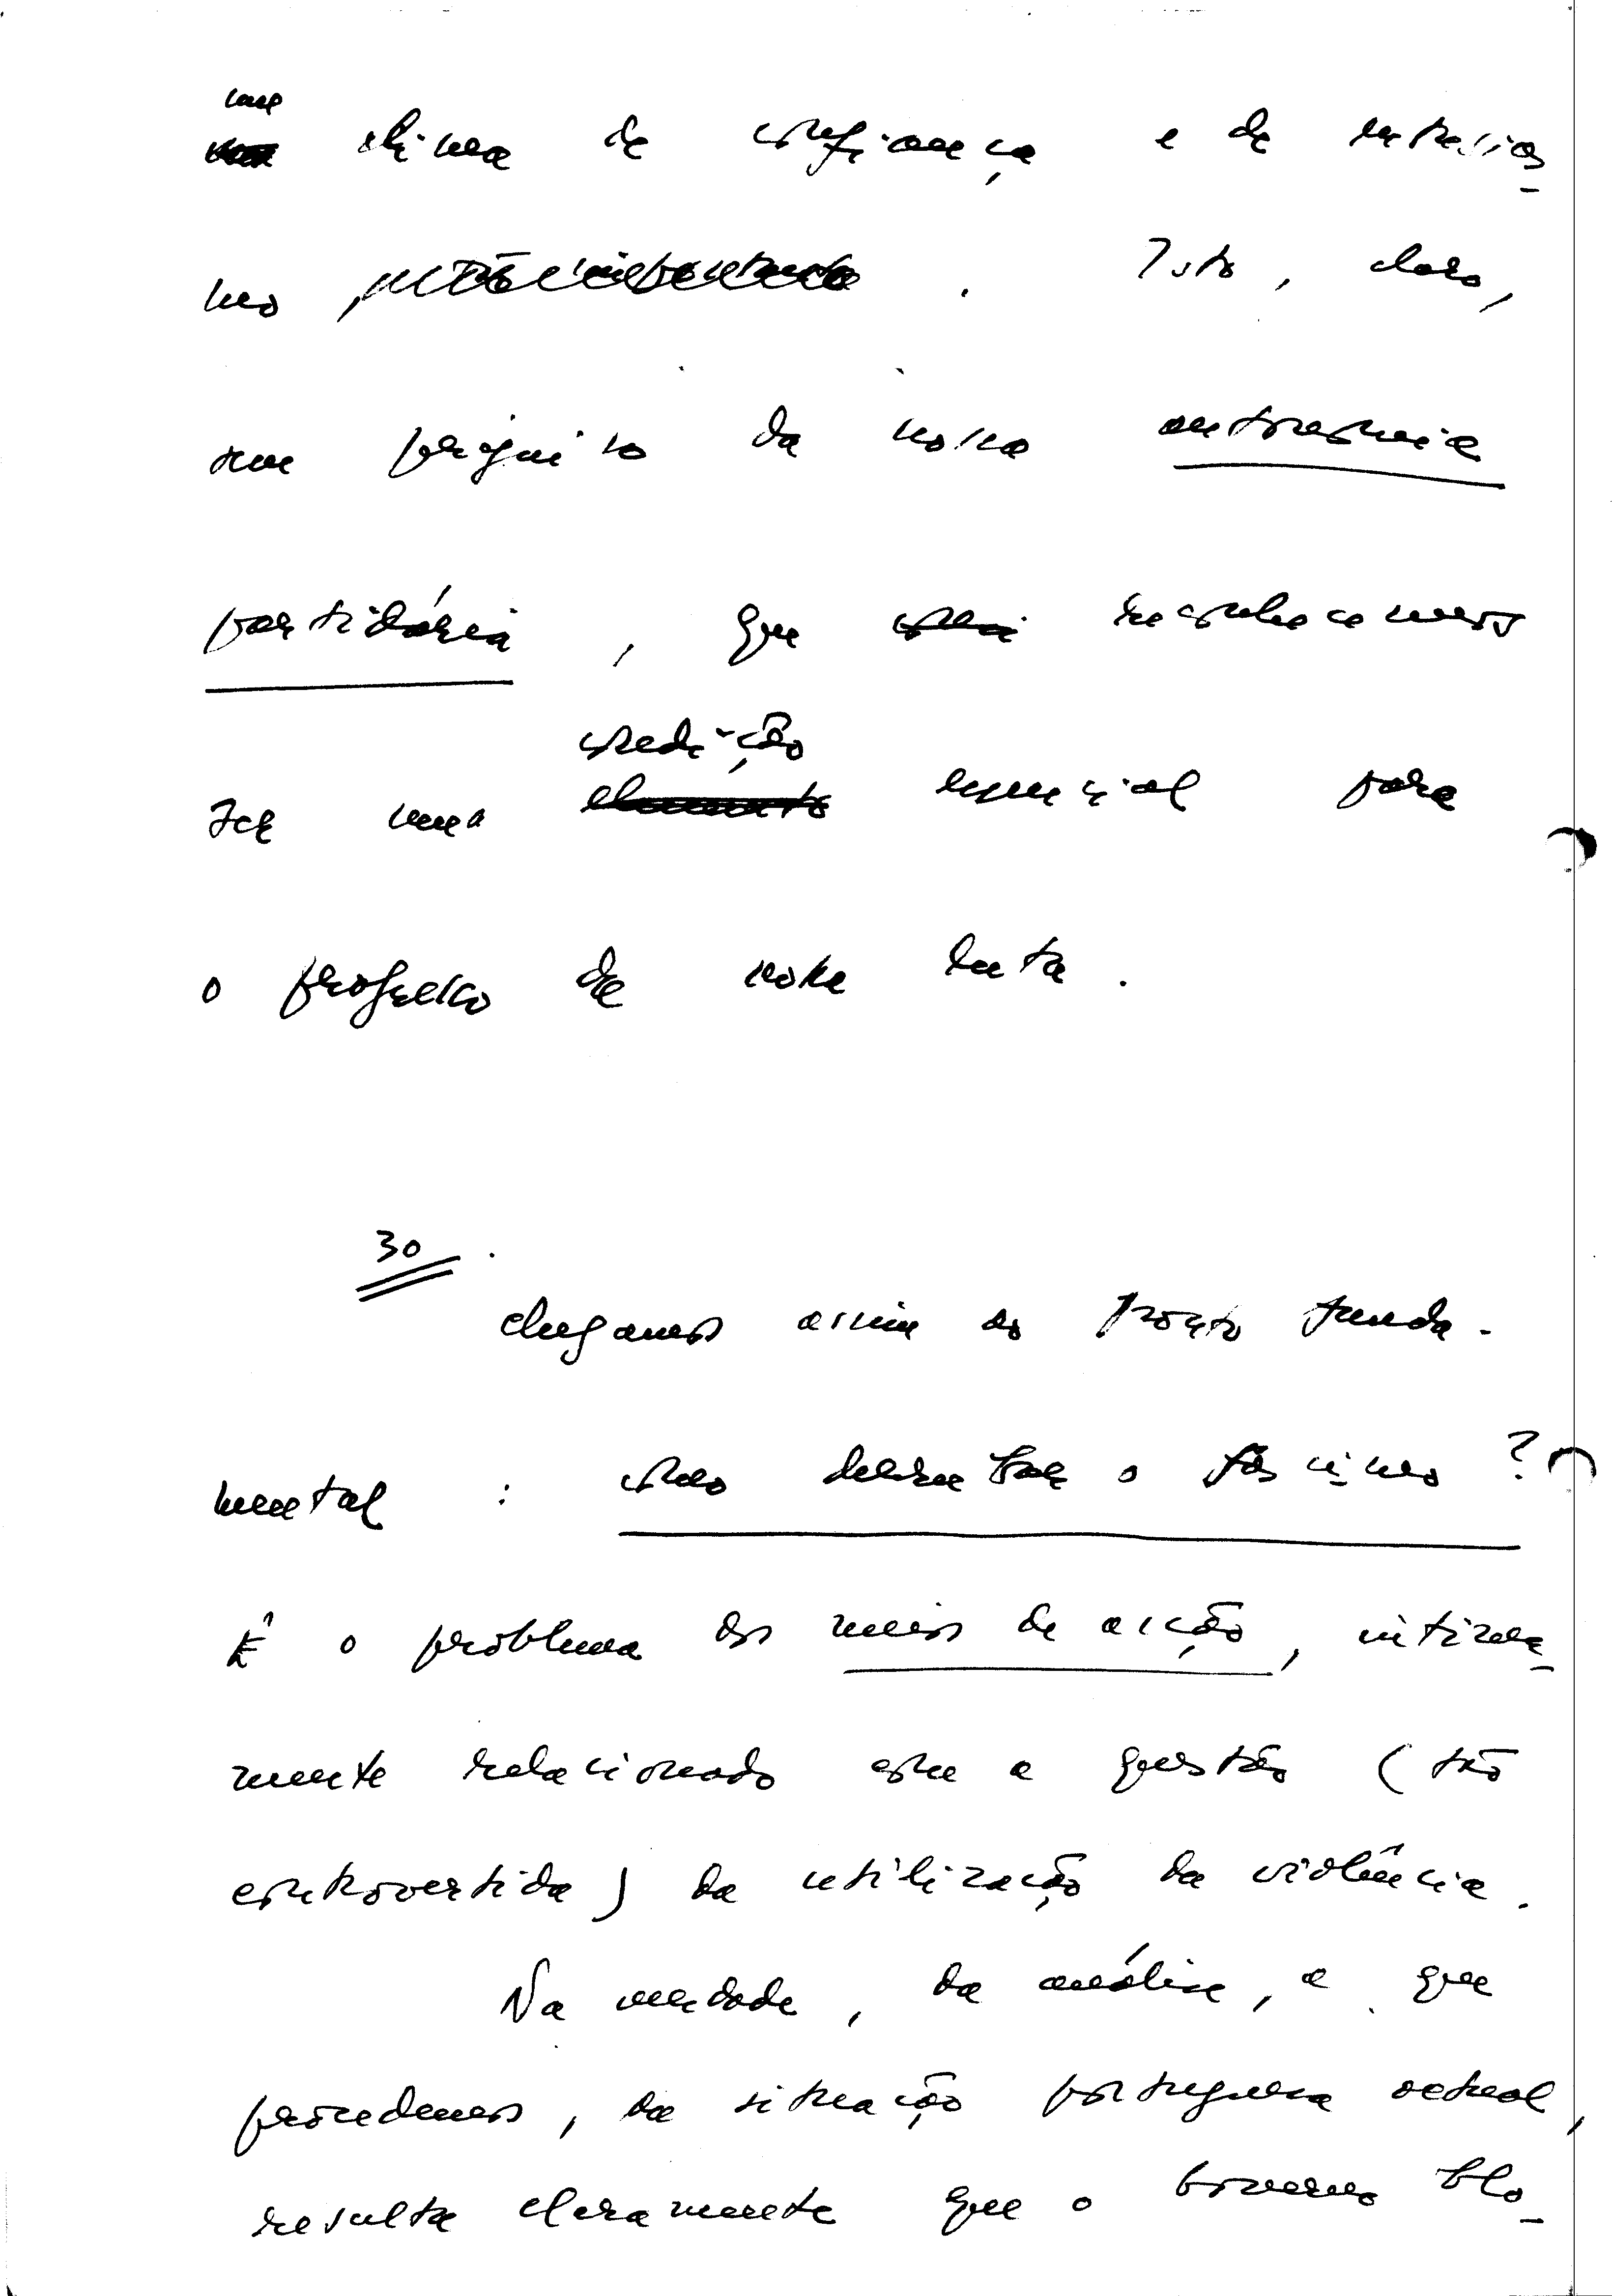 um
clima de confiança e de entusias-
mo. Isto, claro,
sem prejuízo da nossa autonomia
partidária, que reconhecemos
condição
ser uma elemento essencial para
o progresso da nossa luta.
30.
Chegamos assim ao ponto funda-
mental: como derrubar o fascismo?
É o problema dos meios de acção, intima-
mente relacionado com a questão (tão
controvertida) da utilização da violência.
Na verdade, da análise, a que
procedemos, da situação portuguesa actual,
resulta claramente que o Governo blo-